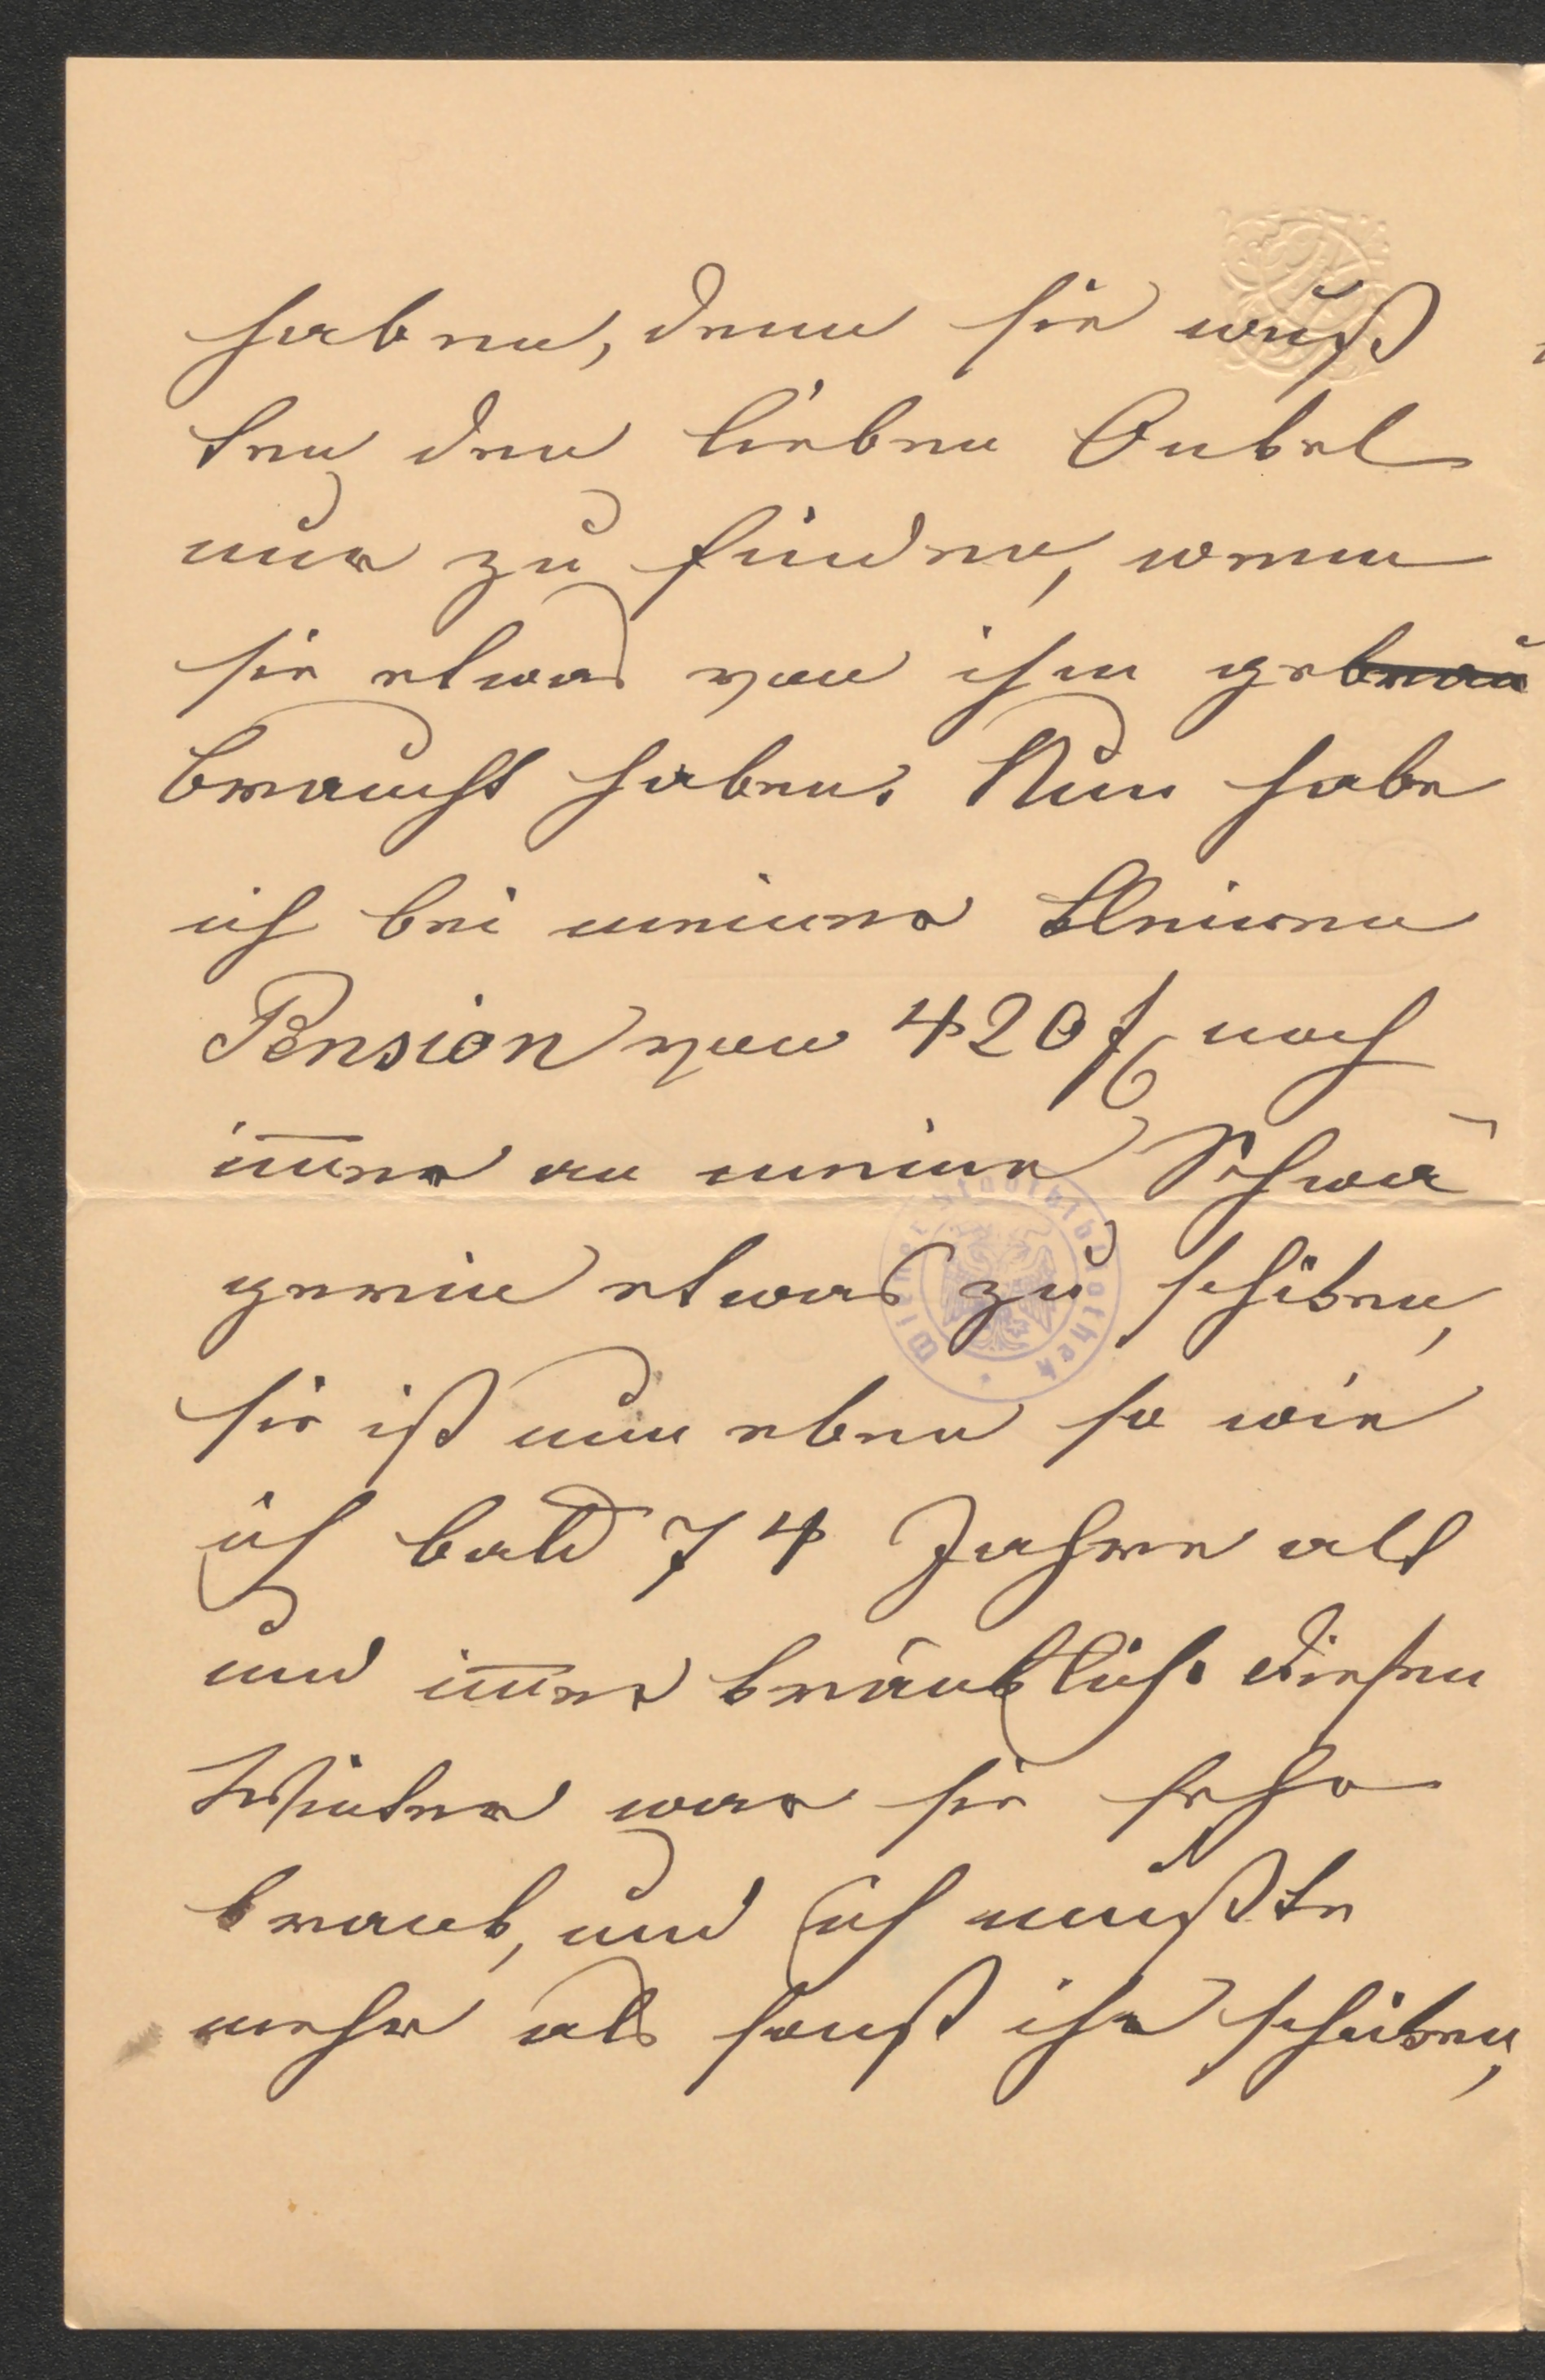 haben, denn sie wuß
ten den lieben Onkel
nur zu finden, wenn
sie etwas von ihm gebrau
braucht haben. Nun habe
ich bei meiner kleinen
Pension von 420 f noch
im̅er an meine Schwä
gerin etwas zu schiken,
sie ist nun eben so wie
ich bald 74 Jahre alt
und im̅er kränklich. diesen
Winter war sie sehr
krank, und ich mußte
mehr als sonst ihr schiken,
Wiener Stadtbibliothek